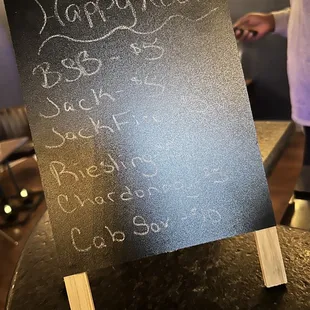 Happy
BSB - $5
Jack - $5
Jack Fire
Riesling
Chardonnay $5
Cab Sav - $10